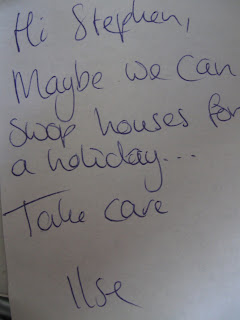 Hi Stephen,
Maybe we can
swap houses for
a holiday...
Take care
Ilse